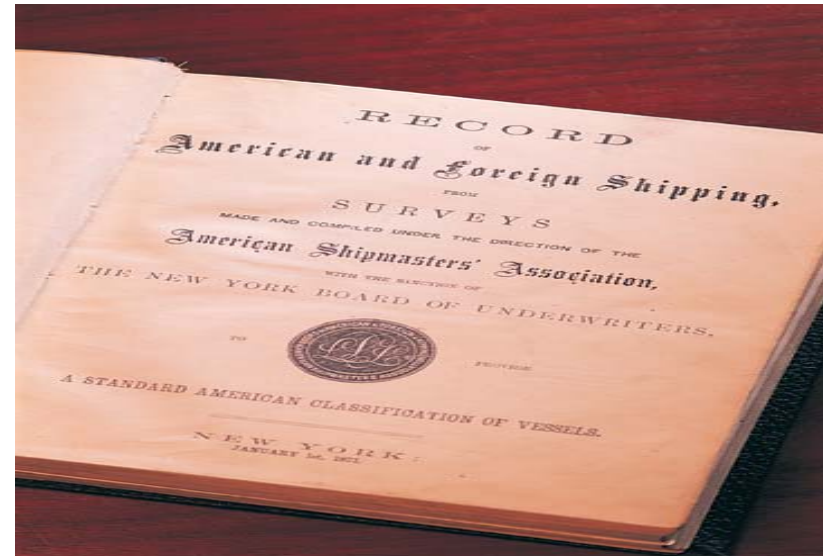 RECORD
OF
American and Foreign Shipping,
FROM
SURVEYS
MADE AND COMPILED UNDER THE DIRECTION OF THE
American Shipmasters' Association,
WITH THE SANCTION OF
THE NEW YORK BOARD OF UNDERWRITERS,
TO PROVIDE
A STANDARD AMERICAN CLASSIFICATION OF VESSELS.
NEW YORK:
JANUARY 1st,